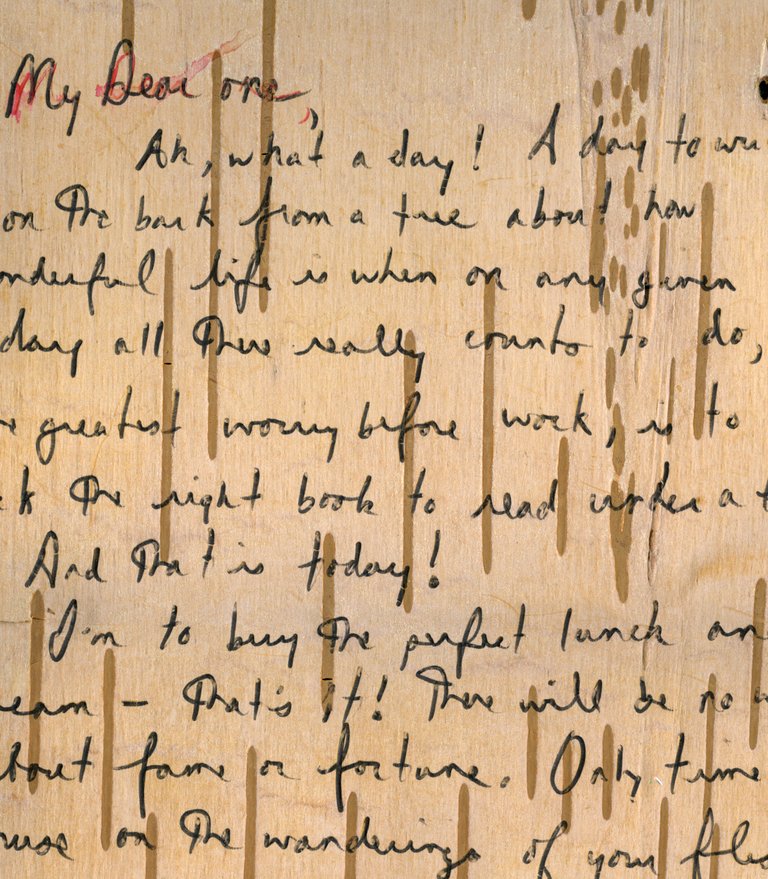 My Dear one,
Ah, what a day! A day to
on the bark from a tree about how
onderful life is when on any given
day all there really counts to do,
greatest worry before work, is to
the right book to read under a
And that is today!
I'm to buy the perfect lunch an
eam – That's it! There will be no
bout fame or fortune. Only time
muse on the wanderings of your